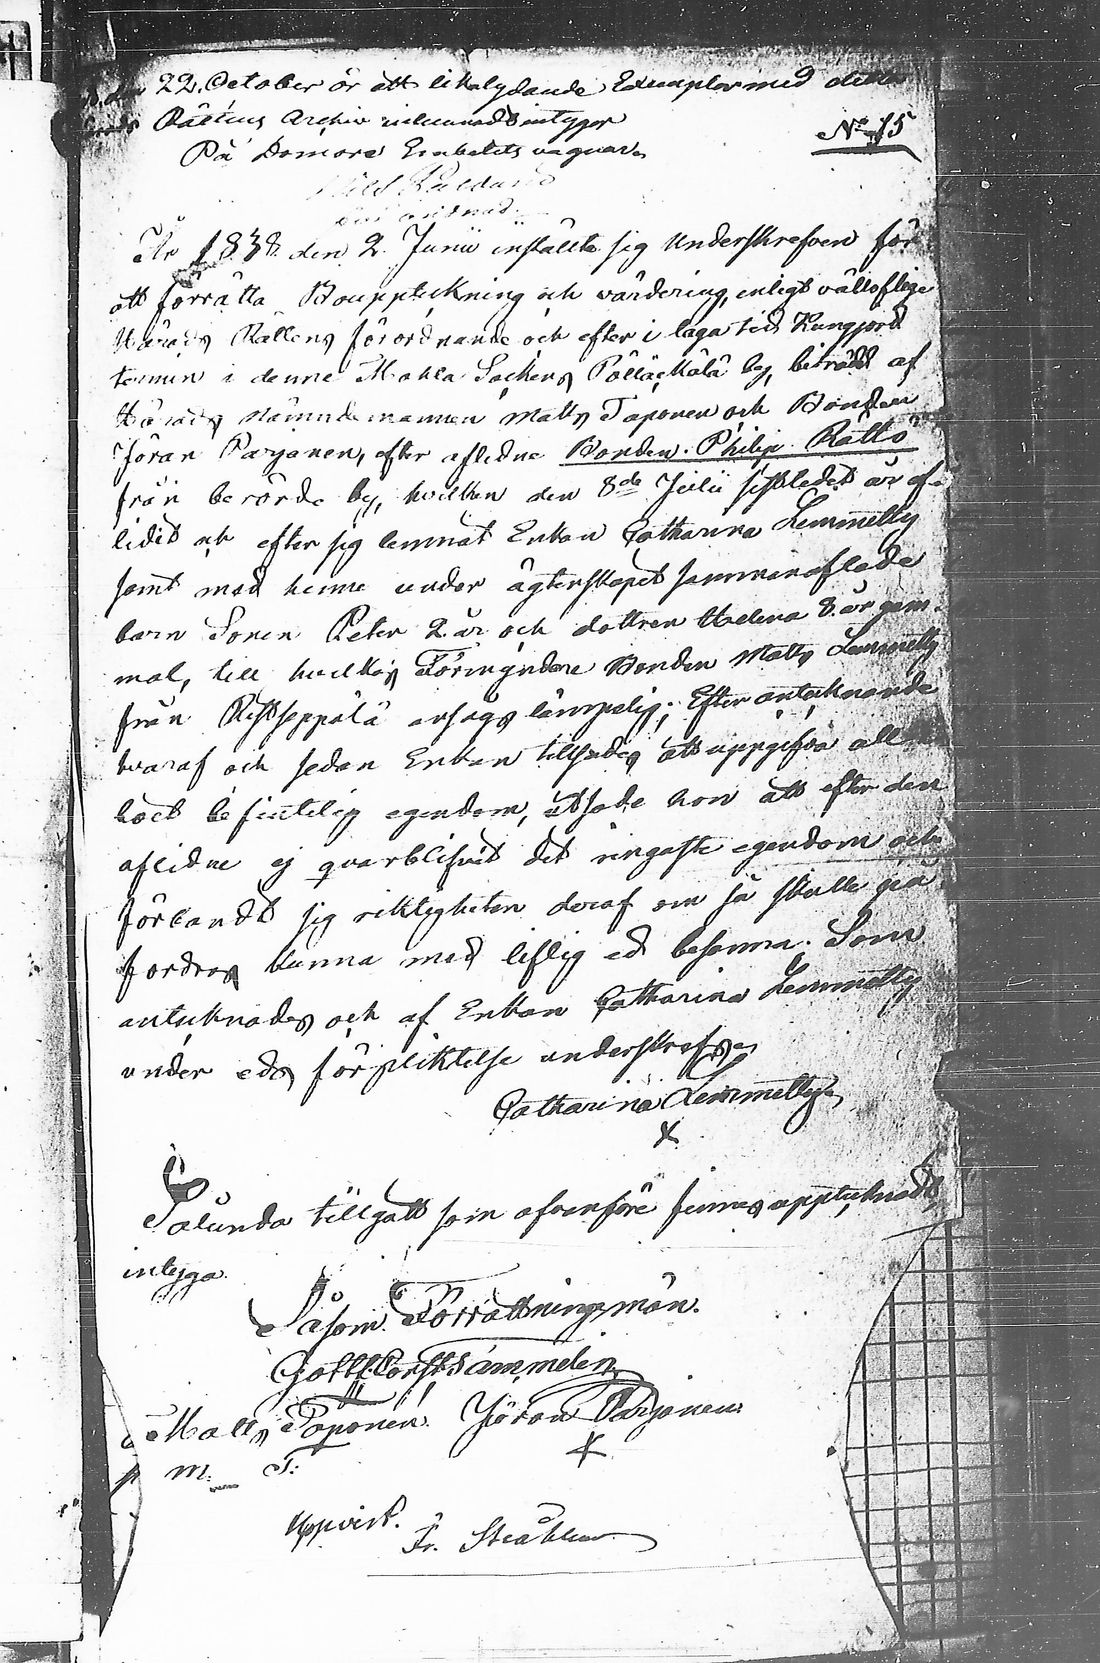 22. October är ett likalydande Exemplar med detta
Rättens Archiv inlemnadt intygar
No 15
På Domare Embetets vägnar
År 1838. den 2. Junii inställte sig Underskrefven för
att förrätta Bouppteckning och värdering, enligt välloflige
Härads Rättens förordnande och efter i laga tid Kungjord
termin i denne Mohla Sockens Pölläkkälä by, biträdd af
Härads nämndemannen Matts Taponen och Bonden
Jöran Parjanen, efter aflidne Bonden Philip Rättö
från berörde by, hvilken den 8de Julii sistledet år af-
lidit och efter sig lemnat Enkan Catharina Lemmetty
samt med henne under ägtenskapet sammanaflade
barn Sonen Peter 2. år och dottren Helena 8. år gam-
mal, till hvilkas Förmyndare Bonden Matts Lemmetty
från Ristseppälä ansågs lämpelig; Efter antecknande
hvaraf och sedan Enkan tillsades att uppgifva all
boet befintelig egendom, utsade hon att efter den
aflidne ej qvarblifvit det ringaste egendom och
förbandt sig riktigheten deraf om så skulle
fordras kunna med liflig ed besanna. Som
antecknades och af Enkan Catharina Lemmetty
under eds förpliktelse underskrefs
Catharina Lemmetty
X
Sålunda tillgått som ofvanföre finnes upptecknadt,
intyga.
Såsom Förrättningsmän.
Matts Taponen. Jöran Parjanen
M. T. X
Uppvist.
Fr. Stråhlman